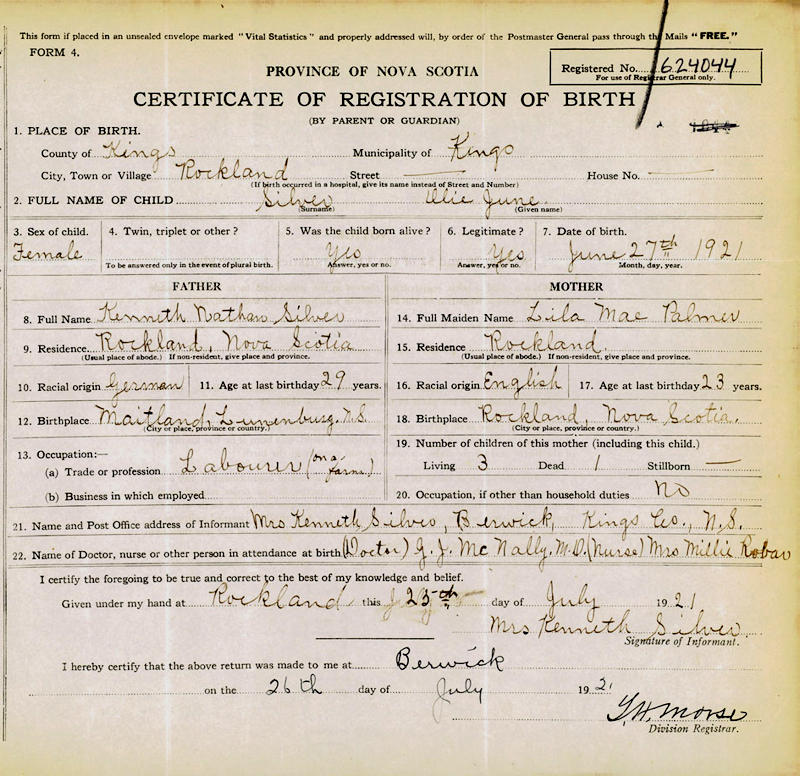 This form if placed in an unsealed envelope marked "Vital Statistics" and properly addressed will, by order of the Postmaster General pass through the Mails "FREE."
FORM 4.
Registered No. 624044
For use of Registrar General only.
PROVINCE OF NOVA SCOTIA
CERTIFICATE OF REGISTRATION OF BIRTH
(BY PARENT OR GUARDIAN)
1. PLACE OF BIRTH.
County of Kings Municipality of Kings
City, Town or Village Rockland Street — House No. —
(If birth occurred in a hospital, give its name instead of Street and Number)
2. FULL NAME OF CHILD Silver Ollie June
(Surname) (Given name)
3. Sex of child. 4. Twin, triplet or other? 5. Was the child born alive? 6. Legitimate? 7. Date of birth.
Female Yes Yes June 27th 1921
To be answered only in the event of plural birth. Answer, yes or no. Answer, yes or no. Month, day, year.
FATHER MOTHER
8. Full Name Kenneth Nathan Silver 14. Full Maiden Name Lila Mae Palmer
9. Residence Rockland, Nova Scotia 15. Residence Rockland.
(Usual place of abode.) If non-resident, give place and province. (Usual place of abode.) If non-resident, give place and province.
10. Racial origin German 11. Age at last birthday 29 years. 16. Racial origin English 17. Age at last birthday 23 years.
12. Birthplace Maitland, Lunenburg. N.S. 18. Birthplace Rockland, Nova Scotia.
(City or place, province or country.) (City or place, province or country.)
13. Occupation:— 19. Number of children of this mother (including this child.)
(a) Trade or profession Labourer (on a farm) Living 3 Dead 1 Stillborn —
(b) Business in which employed 20. Occupation, if other than household duties No
21. Name and Post Office address of Informant Mrs Kenneth Silver, Berwick, Kings Co., N.S.
22. Name of Doctor, nurse or other person in attendance at birth (Doctor) G. J. McNally, M.D. (Nurse) Mrs Millie Robar
I certify the foregoing to be true and correct to the best of my knowledge and belief.
Given under my hand at Rockland this 23th day of July 1921
Mrs Kenneth Silver
Signature of Informant.
I hereby certify that the above return was made to me at Berwick
on the 26th day of July 192
Morse
Division Registrar.